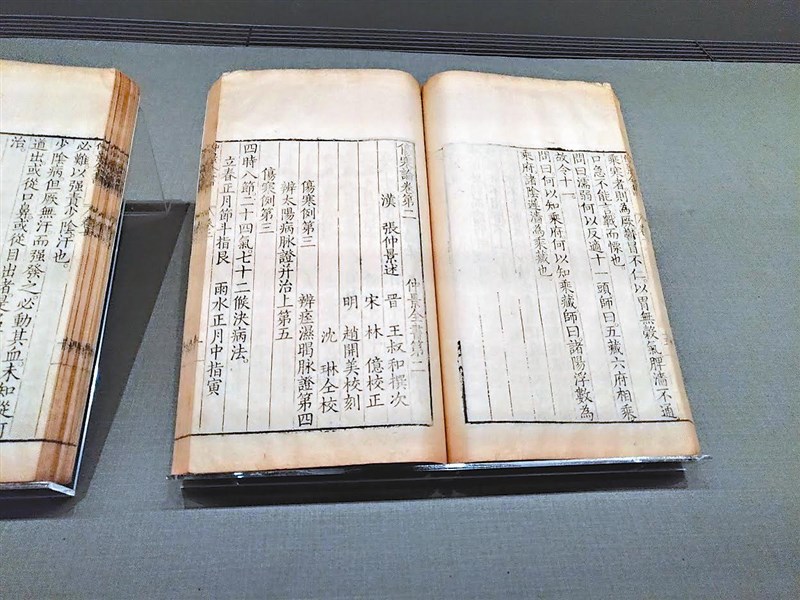 乘寒者則為厥鬱冒不仁以胃無穀氣脾濇不通
口急不能言戰而慄也
問曰濡弱何以反適十一頭師曰五藏六府相乘
故令十一
問曰何以知乘府何以知乘藏師曰諸陽浮數為
乘府諸陰遲濇為乘藏也
傷寒論卷第二
仲景全書第二
漢 張仲景述
晉 王叔和撰次
宋 林 億校正
明 趙開美校刻
沈 琳仝校
傷寒例第三
辨痓濕暍脉證第四
辨太陽病脉證并治上第五
傷寒例第三
四時八節二十四氣七十二候決病法
立春正月節斗指艮 雨水正月中指寅
必難以强責少陰汗也
少陰病但厥無汗而强發之必動其血未知從何
道出或從口鼻或從目出者是名
治